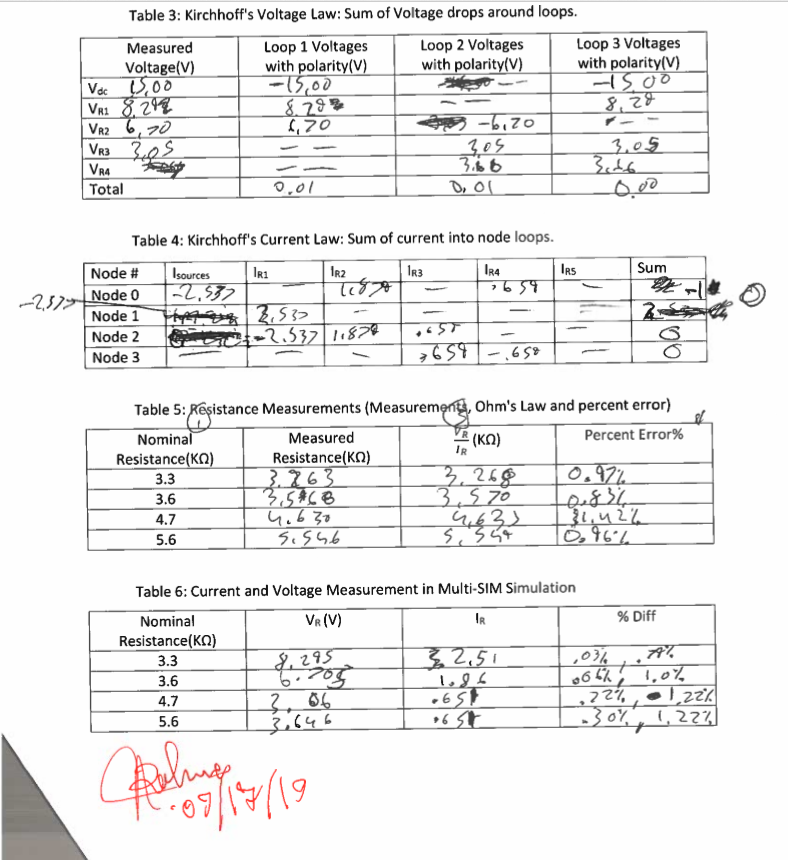 Table 3: Kirchhoff's Voltage Law: Sum of Voltage drops around loops.
Measured Voltage(V) Loop 1 Voltages with polarity(V) Loop 2 Voltages with polarity(V) Loop 3 Voltages with polarity(V)
Vdc 15.00 -15.00 -- -15.00
VR1 8.29 -- 8.29
VR2 6.70 6.70 -6.70 --
VR3 3.05 -- 3.05 3.05
VR4 -- 3.66 3.66
Total 0.01 0.01 0.00
Table 4: Kirchhoff's Current Law: Sum of current into node loops.
Node # Isources IR1 IR2 IR3 IR4 IR5 Sum
Node 0 -2.537 — 1.878 — .659 —
-2.537 Node 1 2.537 — — — — 0
Node 2 -2.537 1.878 .658 — — 0
Node 3 — — — .658 -.658 — 0
Table 5: Resistance Measurements (Measurements, Ohm's Law and percent error)
Nominal Resistance(KΩ) Measured Resistance(KΩ) VR/IR (KΩ) Percent Error%
3.3 3.263 3.268 0.97%
3.6 3.570 0.83%
4.7 4.630 4.633 1.42%
5.6 5.546 5.549 0.96%
Table 6: Current and Voltage Measurement in Multi-SIM Simulation
Nominal Resistance(KΩ) VR (V) IR % Diff
3.3 8.295 2.51 .03%,
3.6 6.705 1.86 .06%, 1.0%
4.7 3.06 .651 .22%, 1.22%
5.6 3.646 .651 .30%, 1.22%
07/17/19